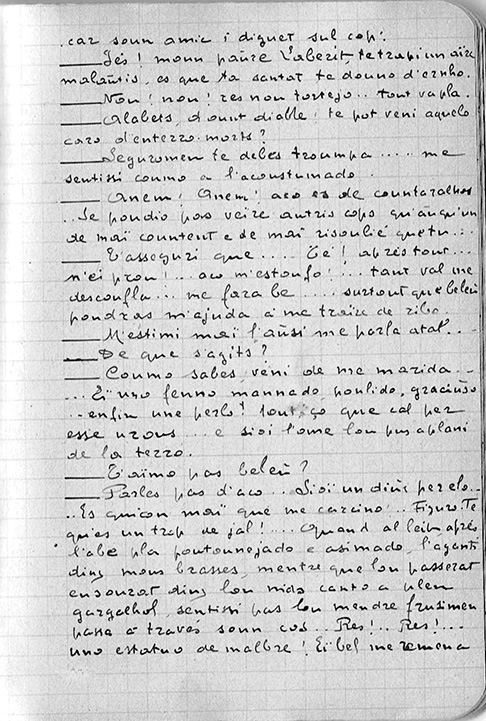 .car soun amic i diguet sul cop:
___ Jés! moun paure Laberit, te trapi un aire
malautis, es que ta santat te douno d'ernho.
___ Non! non! res non tortejo.. tout va pla.
___ Alabets, d'ount diable te pot veni aquelo
caro d'enterro-morts?
___ Seguromen te débes troumpa .... me
sentissi coumo a l'acoustumado.
___ Anem! Anem! aco es de countaralhos
..Se poudio pas veire autris cops qu'auqu'un
de maï countent e de maï risoulié que tu...
___ T'asseguri que .... Té! après tout...
n'ei prou!... aco m'estoufo!... tant val me
descoufla... me fara be .... surtout que beleu
pondras m'ajuda a me traire de ribo.
___ M'estimi maï l'ausi me parla atal..
___ De que s'agits?
___ Coumo sabes, veni de me marida...
... Eï uno fenno mannado, poulido, graciuso
.. enfin uno perlo! tout ço que cal per
esse urous ... e sioi l'ome lou pus aplani
de la terro.
___ T'aïmo pas beleu?
___ Parles pas d'aco... Sioï un dius per elo...
.. Es quicon maï que me carcino... Figuro-Te
qu'es un trap de jal!... Quand al leit, après
l'abé pla poutounejado e asimado, l'aganti
dins mous brasses, mentre que lou passerat
ensourat dins lou nido canto a plen
gargalhol, sentissi pas lou mendre frusimen
passa a través soun cos.. Res!.. Res!...
uno estatuo de malbre! Eï bel me remena